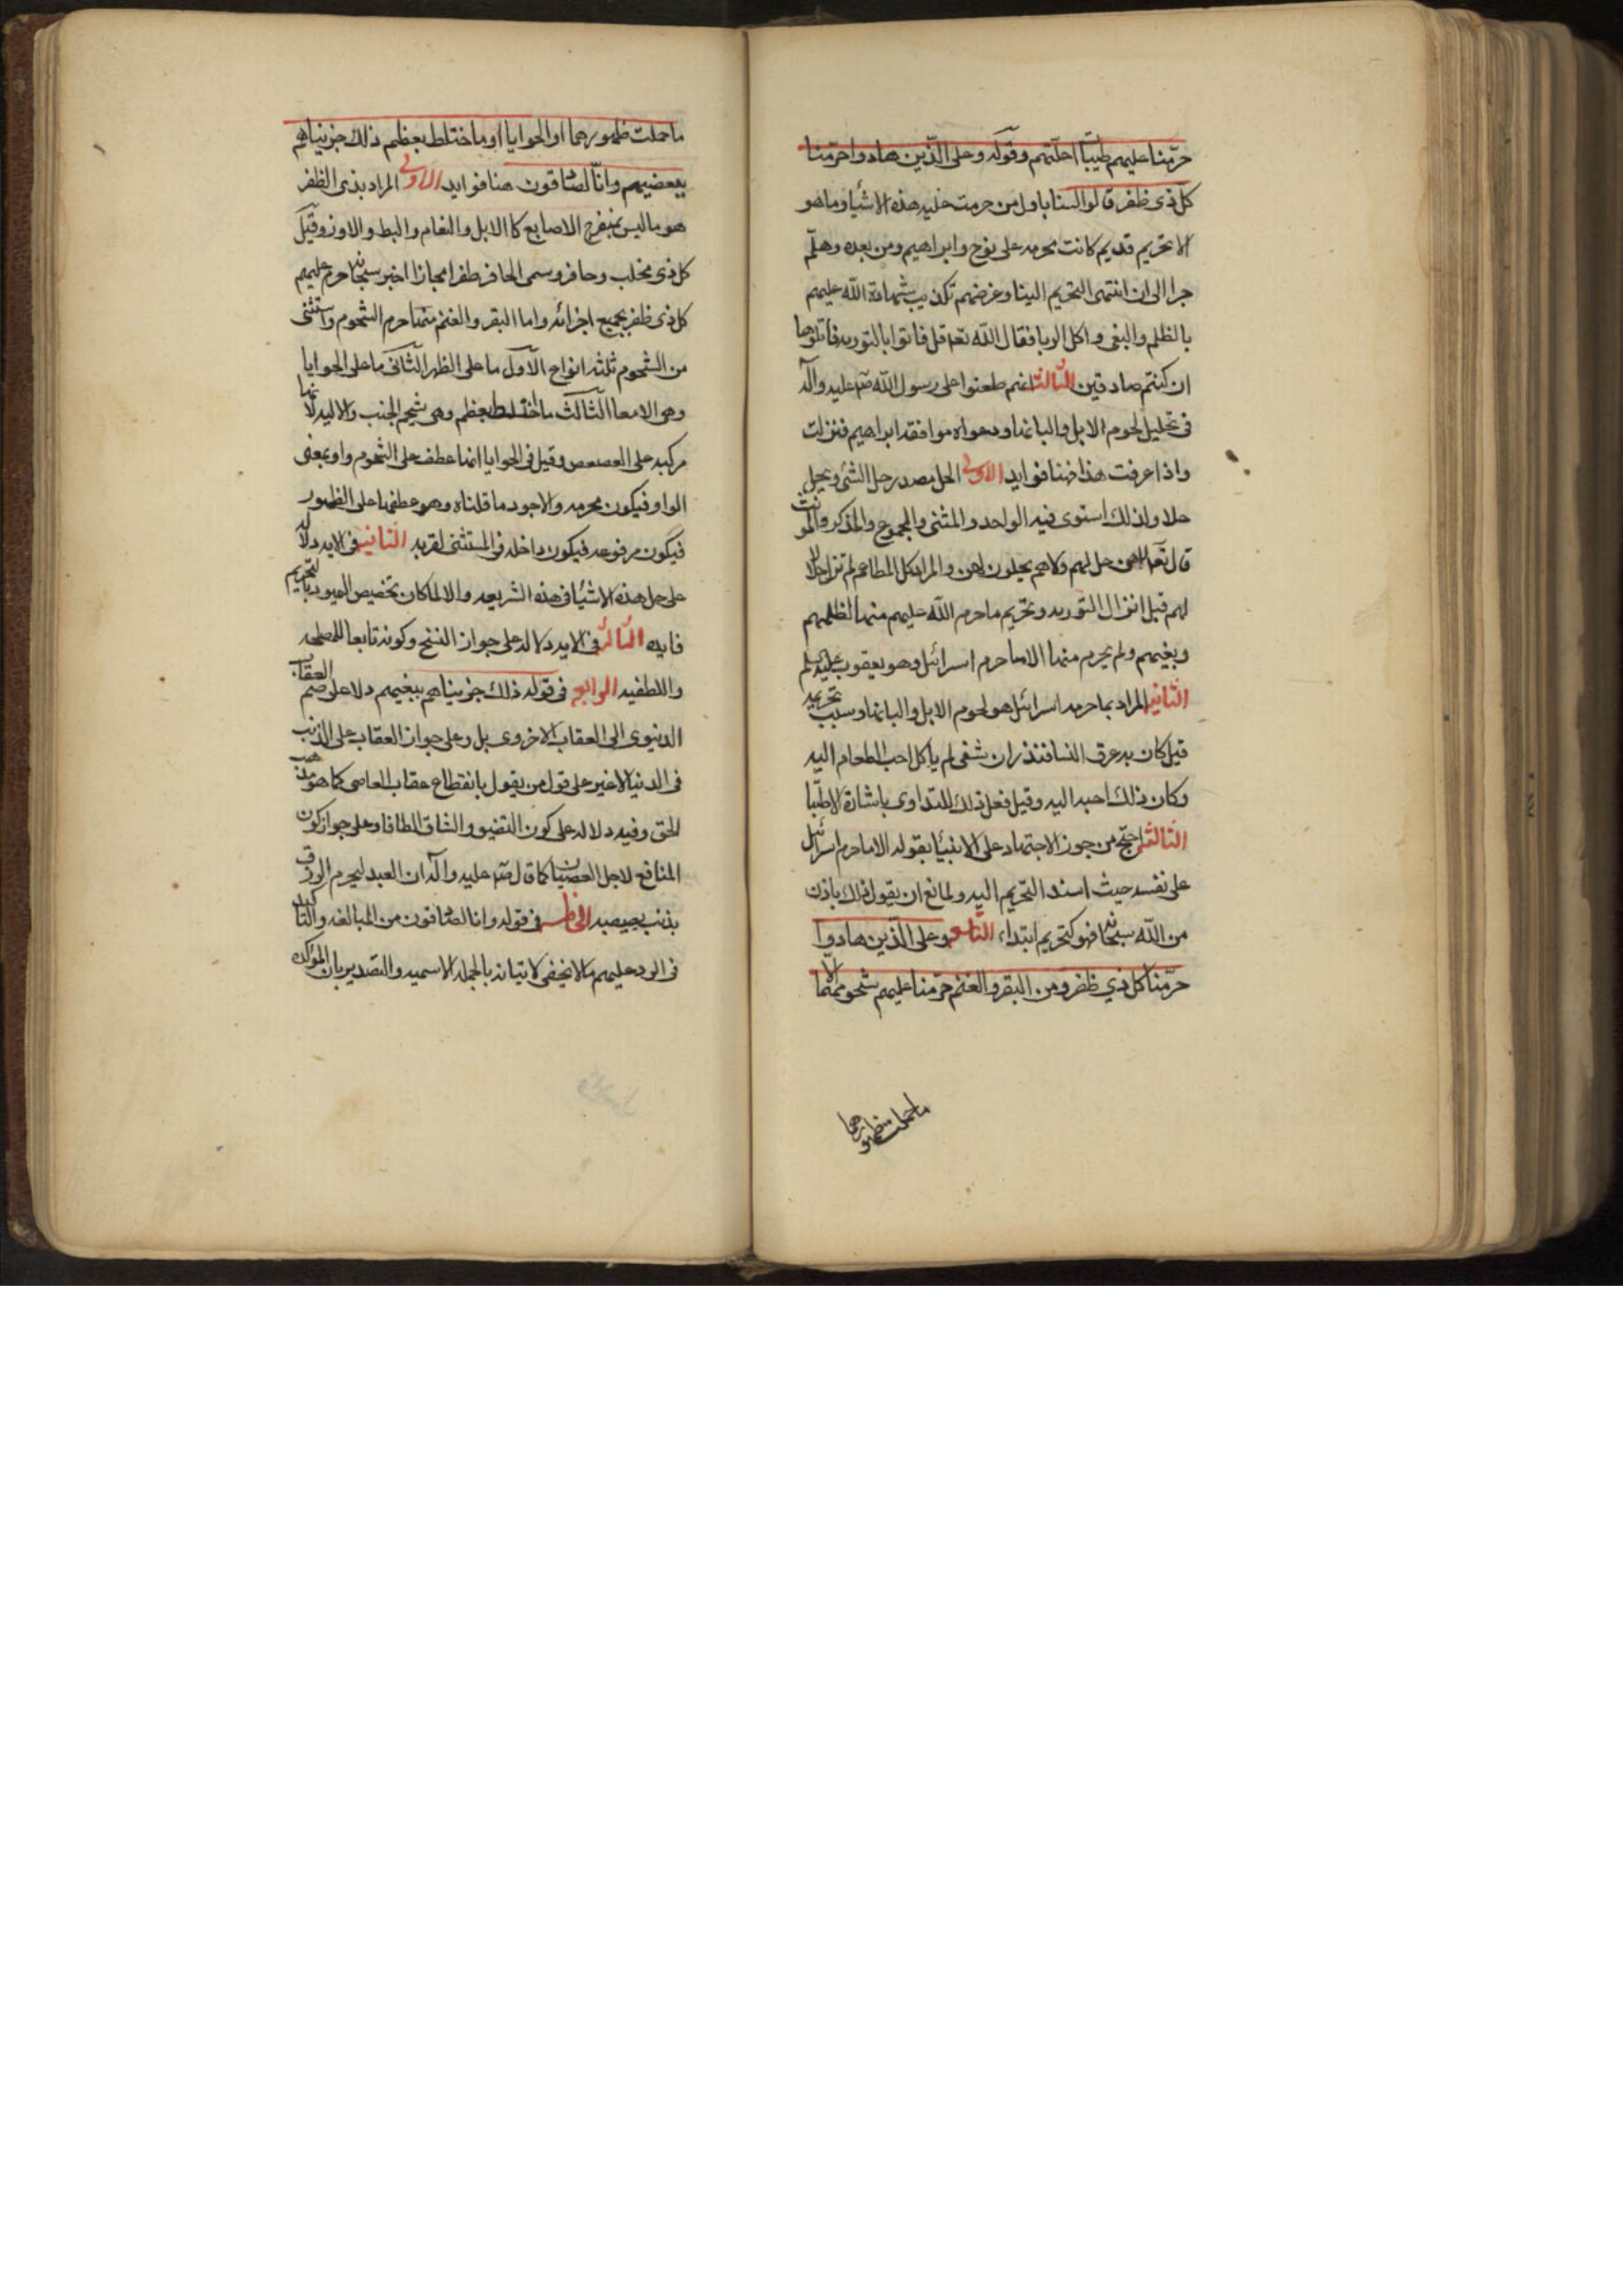 حرّمنا عليهم طيّبا احلّتهم وقوله وعلى الّذين هادوا حرّمنا
كل ذى ظفر قالوا لسنا باول من حرمت عليه هذه الاشيا وما هو
الا تحريم قديم كانت محرمه على نوح وابراهيم ومن بعده وهلمّ
جرا الى ان انتهى التحريم الينا وغرضهم تكذيب شهادة الله عليهم
بالظلم والبغى واكل الربا فقال الله تعه قل فاتوا بالتوريه فاتلوها
ان كنتم صادقين الثالث انهم طعنوا على رسول الله صه عليه واله
فى تحليل لحوم الابل والبانها ودعواه موافقه ابراهيم فنزلت
واذا عرفت هذا فهنا فوايد الاولى الحل مصدر حل الشئ يحل
حلا ولذلك استوى فيه الواحد والمثنى والمجموع والمذكر والمونث
قال تعه لاهن حل لهم ولا هم يحلون لهن والمراد كل المطاعم لم تزل حلالا
لهم قبل انزال التوريه وتحريم ما حرم الله عليهم منها لظلمهم
وبغيهم ولم يحرم منها الا ما حرم اسرائيل وهو يعقوب عليه السلم
الثانيه المراد بما حرمه اسرائيل هو لحوم الابل والبانها وسبب تحريمه
قيل كان به عرق النسا فنذر ان شفى لم ياكل احب الطعام اليه
وكان ذلك احبه اليه وقيل فعل ذلك للتداوى باشارة الاطبّا
الثالثه احتج من جوز الاجتهاد على الانبيا بقوله الا ما حرم اسرائيل
على نفسه حيث اسند التحريم اليه ولمانع ان يقول ذلك باذن
من الله سبحانه فهو كتحريم ابتداء التاسعه وعلى الّذين هادوا
حرّمنا كل ذي ظفر ومن البقر والغنم حرّمنا عليهم شحومهما الا
ما حملت ظهورهما
ما حملت ظهورهما او الحوايا او ما اختلط بعظم ذلك جزيناهم
ببغيهم وانّا لصادقون هنا فوايد الاولى المراد بذى الظفر
هو ما ليس بمنفرج الاصابع كالابل والنعام والبط والاوز وقيل
كل ذى مخلب وحافر وسمى الحافر ظفرا مجازا اخبر سبحانه حرم عليهم
كل ذى ظفر بجميع اجزائه واما البقر والغنم منها حرم الشحوم واستثنى
من الشحوم ثلثه انواع الاول ما على الظهر الثانى ما على الحوايا
وهى الامعا الثالث ما اختلط بعظم وهى شحم الجنب والاليه لانها
مركبه على العصعص وقيل فى الحوايا انها عطف على الشحوم واو بمعنى
الواو فيكون محرمه والاجود ما قلناه وهو عطفها على الظهور
فيكون مرفوعه فيكون داخله فى المستثنى لقربه الثانيه فى الايه دلاله
على حل هذه الاشيا فى هذه الشريعه والا لما كان تخصيص اليهود بالتحريم
فايده الثالثه فى الايه دلاله على جواز النسخ وكونه تابعا للمصلحه
واللطفيه الرابع فى قوله ذلك جزيناهم ببغيهم دلا على ضم العقاب
الدنيوى الى العقاب الاخروى بل وعلى جواز العقاب على الذنب
فى الدنيا لا غير على قول من يقول بانقطاع عقاب العاصى كما هو مذهب
الحق وفيه دلاله على كون التضيو والشاق الطافا وعلى جواز كون
المنافع لاجل العصيان كما قال صه عليه واله ان العبد ليحرم الرزق
بذنب يصيبه الخامس فى قوله وانا لصادقون من المبالغه والتاكيد
فى الرد عليهم ما لا يخفى لاتيانه بالجمله الاسميه والتصدير بان الموكده